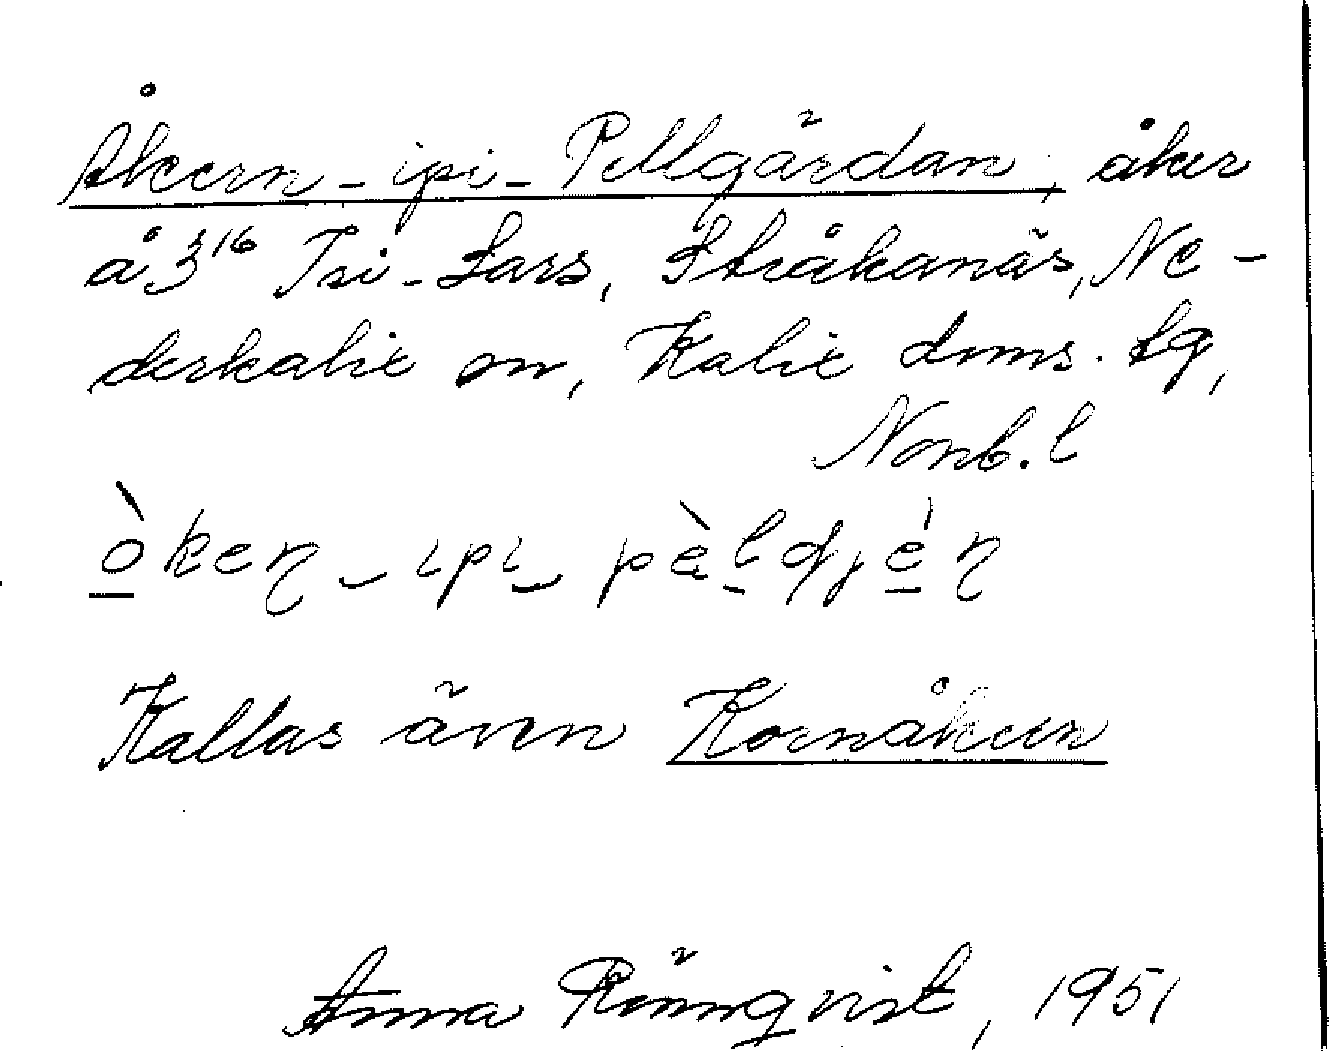 Åkern-ipi-Pellgärdan, åker
å 3¹⁶ Tri-Lars, Stråkanäs, Ne-
derkalix sn, Kalix doms. tg,
Norrb. l
Kallas även Kornåkern
Anna Rönnqvist, 1951